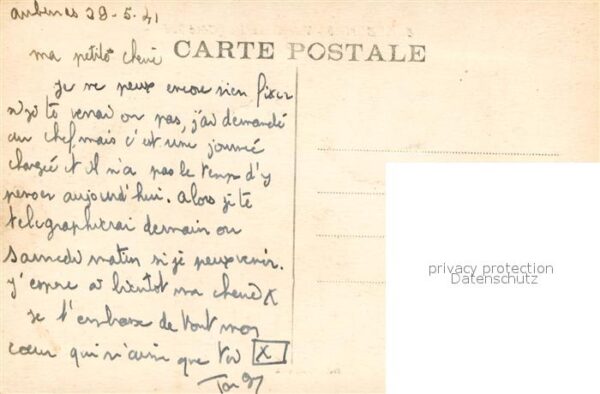 Aubenas 29-5-41
CARTE POSTALE
ma petite chérie
Je ne peux encore rien fixer
si je te verrai ou pas, j'ai demandé
au chef mais c'est une journée
chargée et il n'a pas le temps d'y
penser aujourd'hui. Alors je te
telegraphierai demain ou
samedi matin si je peux venir.
J'espère à bientot ma cherie X
Je t'embrasse de tout mon
coeur qui n'aime que toi X
privacy protection
Datenschutz